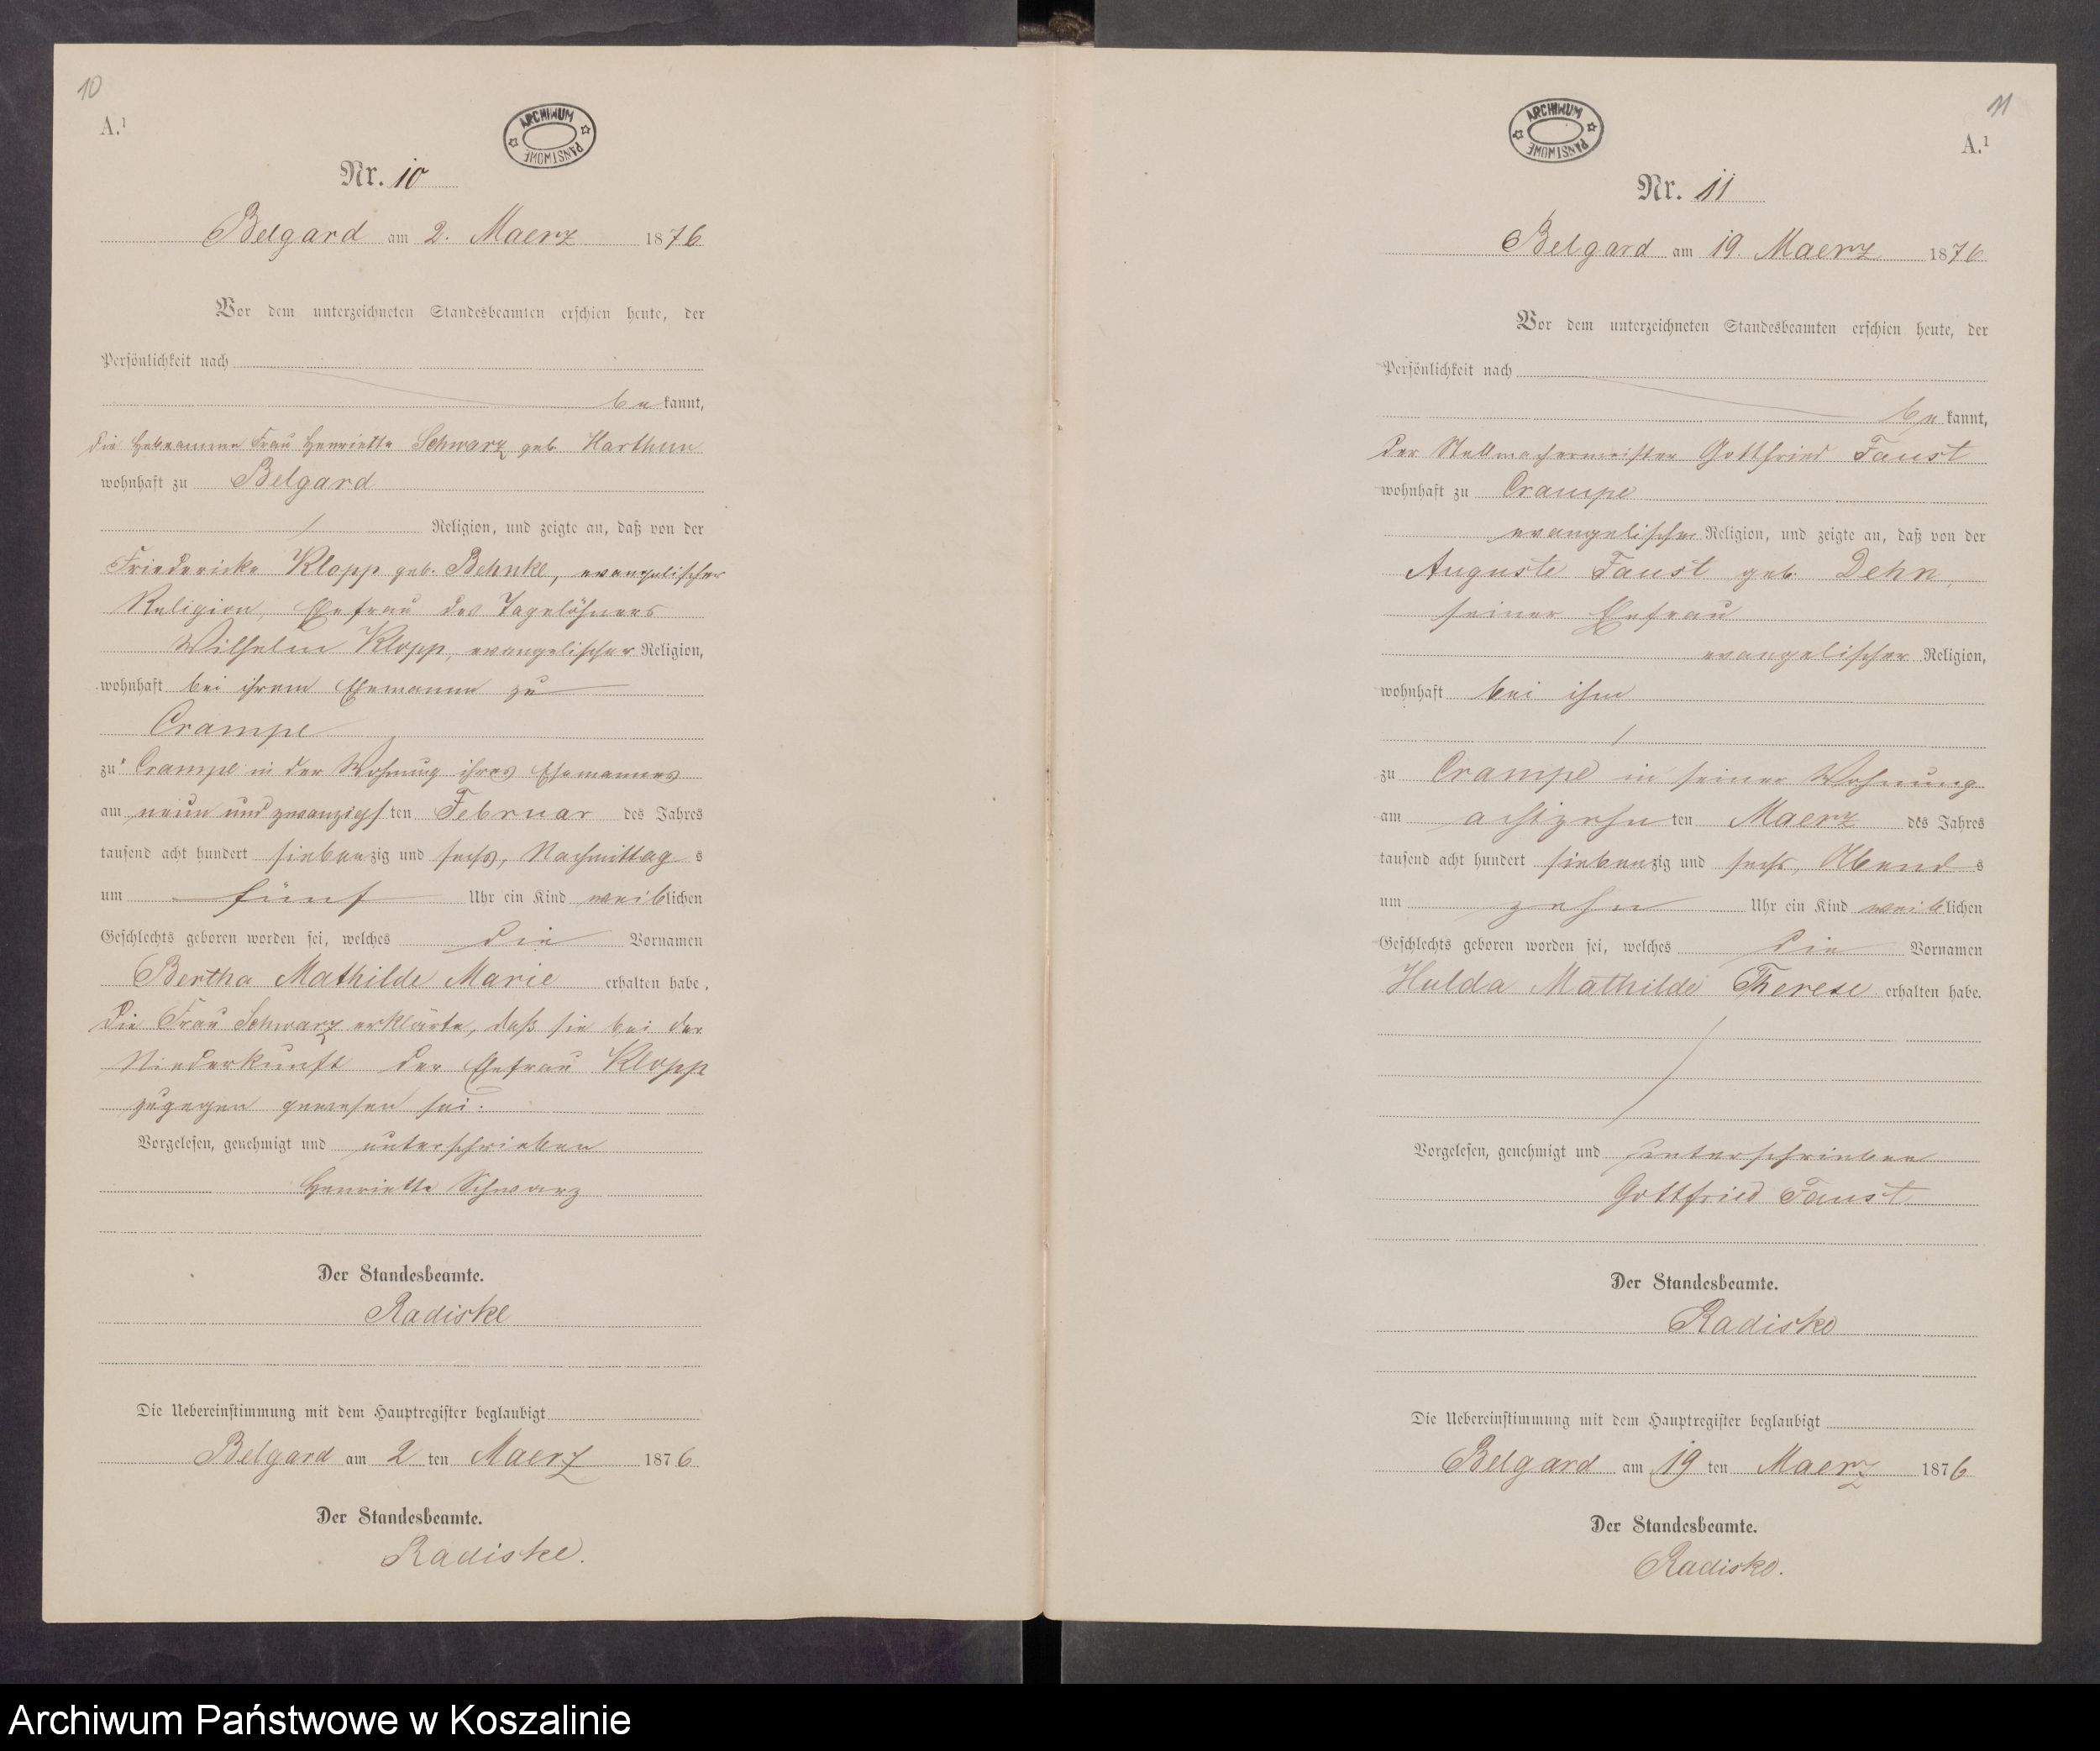 10
A.¹
ARCHIWUM PAŃSTWOWE
Nr. 10
Belgard am 2. Maerz 1876
Vor dem unterzeichneten Standesbeamten erschien heute, der
Persönlichkeit nach
bekannt,
die Hebeamme Frau Henriette Schwarz geb. Karthun
wohnhaft zu Belgard
/ Religion, und zeigte an, daß von der
Friedericke Klopp geb. Behnke, evangelischer
Religion, Ehefrau des Tagelöhners
Wilhelm Klopp, evangelischer Religion,
wohnhaft bei ihrem Ehemanne zu
Crampe
zu Crampe in der Wohnung ihres Ehemannes
am neun und zwanzigsten Februar des Jahres
tausend acht hundert siebenzig und sechs, Nachmittags
um fünf Uhr ein Kind weiblichen
Geschlechts geboren worden sei, welches die Vornamen
Bertha Mathilde Marie erhalten habe.
Die Frau Schwarz erklärte, daß sie bei der
Niederkunft der Ehefrau Klopp
zugegen gewesen sei.
Vorgelesen, genehmigt und unterschrieben
Henriette Schwarz
Der Standesbeamte.
Radiske
Die Uebereinstimmung mit dem Hauptregister beglaubigt
Belgard am 2 ten Maerz 1876
Der Standesbeamte.
Radiske.
11
A.¹
ARCHIWUM PAŃSTWOWE
Nr. 11
Belgard am 19. Maerz 1876
Vor dem unterzeichneten Standesbeamten erschien heute, der
Persönlichkeit nach
bekannt,
der Stellmachermeister Gottfried Faust
wohnhaft zu Crampe
evangelischer Religion, und zeigte an, daß von der
Auguste Faust geb. Dehn,
seiner Ehefrau
evangelischer Religion,
wohnhaft bei ihm
/
zu Crampe in seiner Wohnung
am achtzehnten Maerz des Jahres
tausend acht hundert siebenzig und sechs, Abends
um zehn Uhr ein Kind weiblichen
Geschlechts geboren worden sei, welches die Vornamen
Hulda Mathilde Therese erhalten habe.
Vorgelesen, genehmigt und unterschrieben
Gottfried Faust
Der Standesbeamte.
Radiske
Die Uebereinstimmung mit dem Hauptregister beglaubigt
Belgard am 19 ten Maerz 1876
Der Standesbeamte.
Radiske.
Archiwum Państwowe w Koszalinie